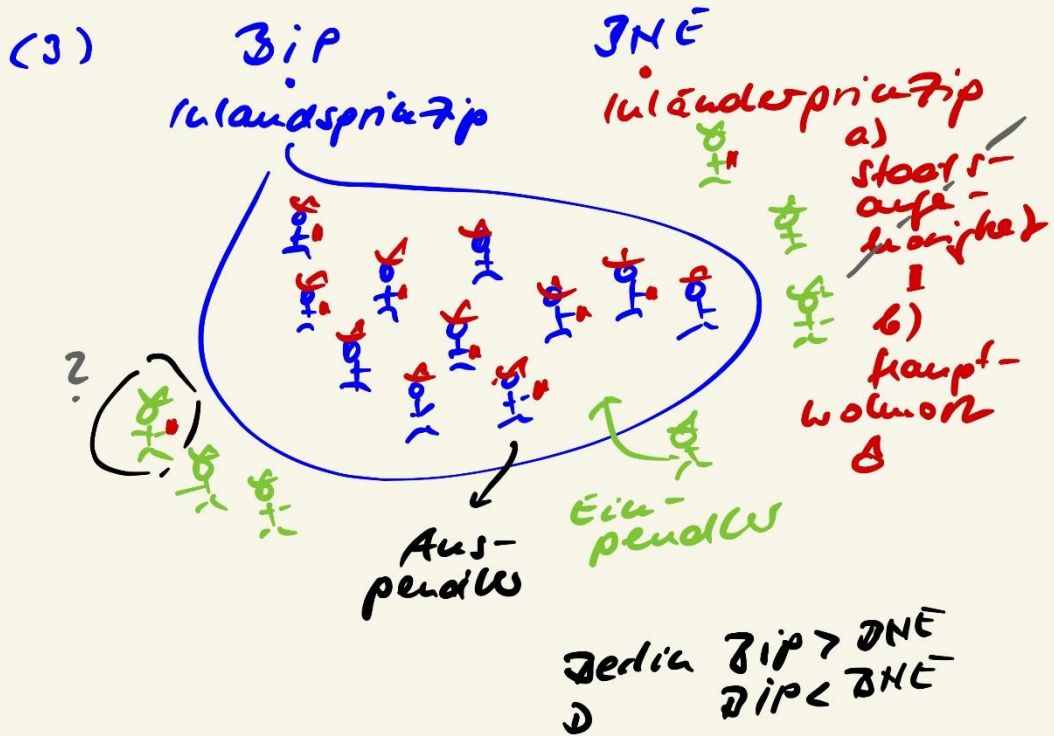 (3)
BiP
Inlandsprinzip
BNE
Inländerprinzip
a)
Staats-
ange-
hörigkeit
b)
Haupt-
wohnort
?
Aus-
pendler
Ein-
pendler
Berlin BiP > BNE
D BiP < BNE